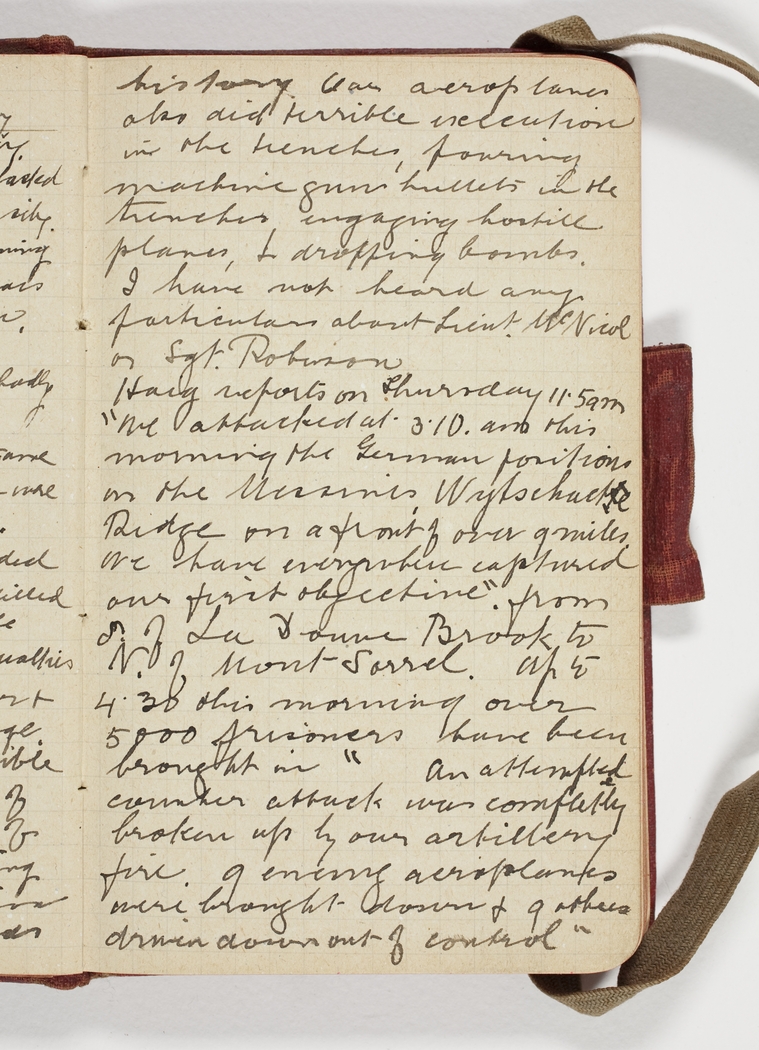 history. Our aeroplanes
also did terrible execution
in the trenches, pouring
machine guns bullets in the
trenches, engaging hostile
planes, & dropping bombs.
I have not heard any
particulars about Lieut. McNicol
or Sgt. Robinson
Haig reports on Thursday 11.5am
"We attacked at 3.10. am this
morning the German positions
on the Messines, Wytschaete
Ridge on a front of over 9 miles
We have everywhere captured
our first objective". from
S. of La Douve Brook to
N. of Mont Sorrel. Up to
4.30 this morning over
5000 prisoners have been
brought in " An attempted
counter attack was completely
broken up by our artillery
fire. 9 enemy aeroplanes
were brought down & 9 others
driven down out of control"